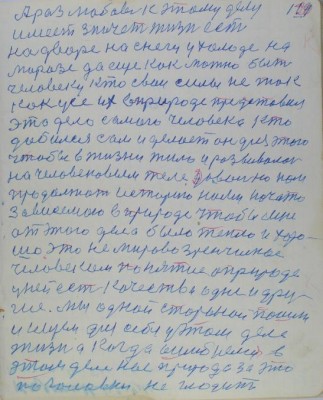 А раз любовь к этому делу
имеет значет жизнь есть
на дворе на снегу и холоде на
морозе да еще как можно быть
человеку кто свои силы не так
как усе их в природе представил
это дело самого человека кто
добился сам и делает он для этого
чтобы в жизни жило и развивалось
на человековым теле
продолжат историю ними начато
Зависемою в природе чтобы мне
от этого дела было тепло и хоро-
шо это не мировозренческое
человеком понятие о природе
у ней ест качества одне и дру-
гие. мы одной стороной пошли
и ищем для себя у этом деле
жизнь а когда ошибнемся в
этом деле нас природа за это
по головки не гладить